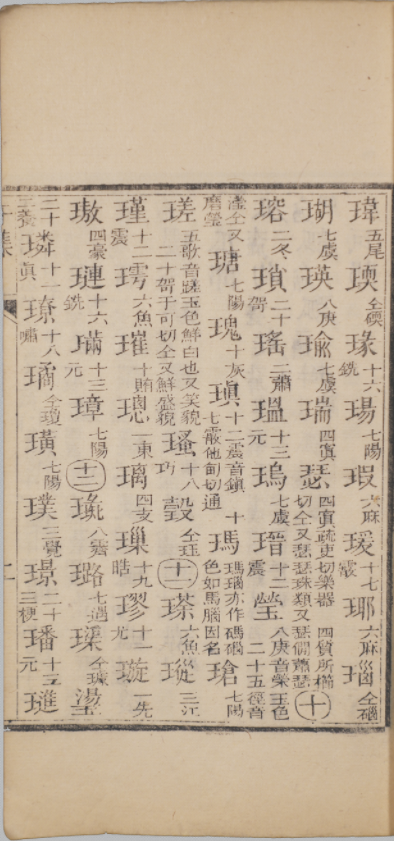 瑋五尾瑌仝碝瑑十六銑瑒七陽瑕六麻瑗十七霰瑘六麻瑙仝碯
瑚七虞瑛八庚瑜七虞瑞四寘瑟四質所櫛切樂器仝又瑟瑟珠類又瑟僩蕭瑟十
瑢二冬瑣二十哿瑤二蕭瑥十三元瑦七虞瑨十二震瑩八庚音榮玉色二十五徑音
瀅仝又磨瑩瑭七陽瑰十灰瑱十二震音鎮七霰他甸切通十瑪瑪瑙亦作碼碯色如馬腦因名瑲七陽
瑳五歌音蹉玉色鮮白也又笑貌二十哿千可切仝又鮮盛貌瑵十八巧瑴仝珏十一瑹六魚瑽三江
瑾十二震璍六魚璀十賄璁一東璃四支璅十九皓璆十一尤璇一先
璈四豪璉十六銑璊十三元璋七陽十二璏八霽璐七遇璖仝璩璗
二十二養璘十一真璙十八嘯璚仝瓊璜七陽璞三覺璟二十三梗璠十三元璡